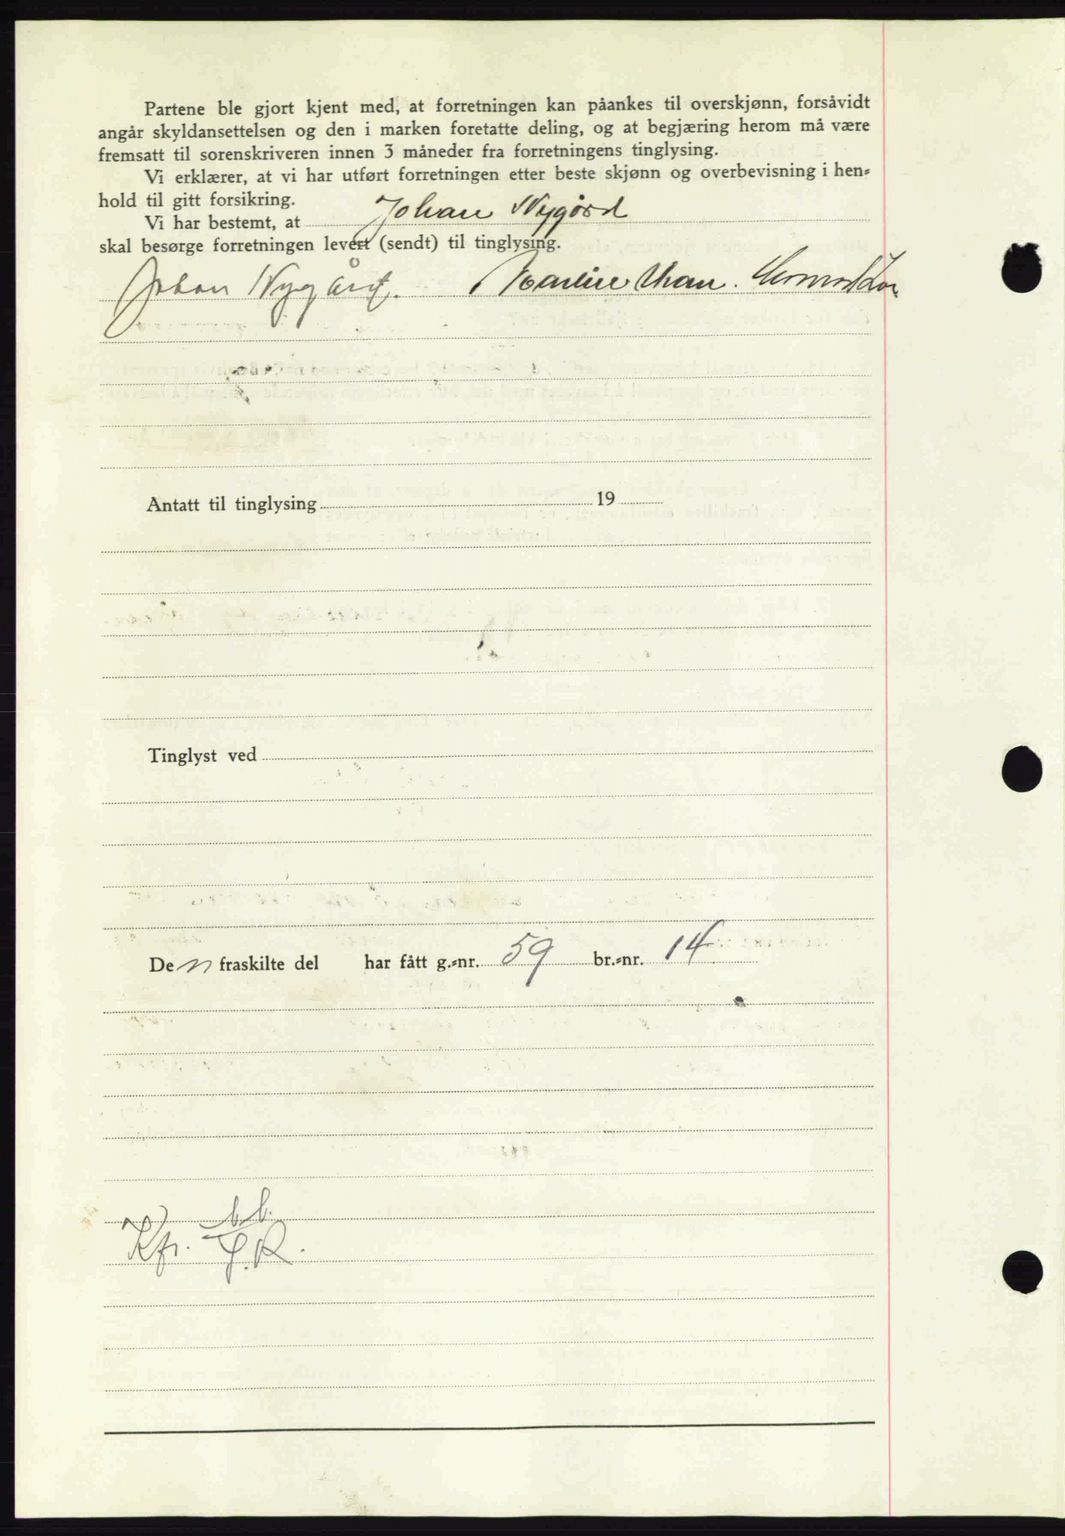 Partene ble gjort kjent med, at forretningen kan påankes til overskjønn, forsåvidt
angår skyldansettelsen og den i marken foretatte deling, og at begjæring herom må være
fremsatt til sorenskriveren innen 3 måneder fra forretningens tinglysing.
Vi erklærer, at vi har utført forretningen etter beste skjønn og overbevisning i hen-
hold til gitt forsikring.
Vi har bestemt, at Johan Nygård
skal besørge forretningen levert (sendt) til tinglysing.
Johan Nygård.
Antatt til tinglysing 19
Tinglyst ved
De n fraskilte del har fått g.-nr. 59 br.-nr. 14
Kfr.